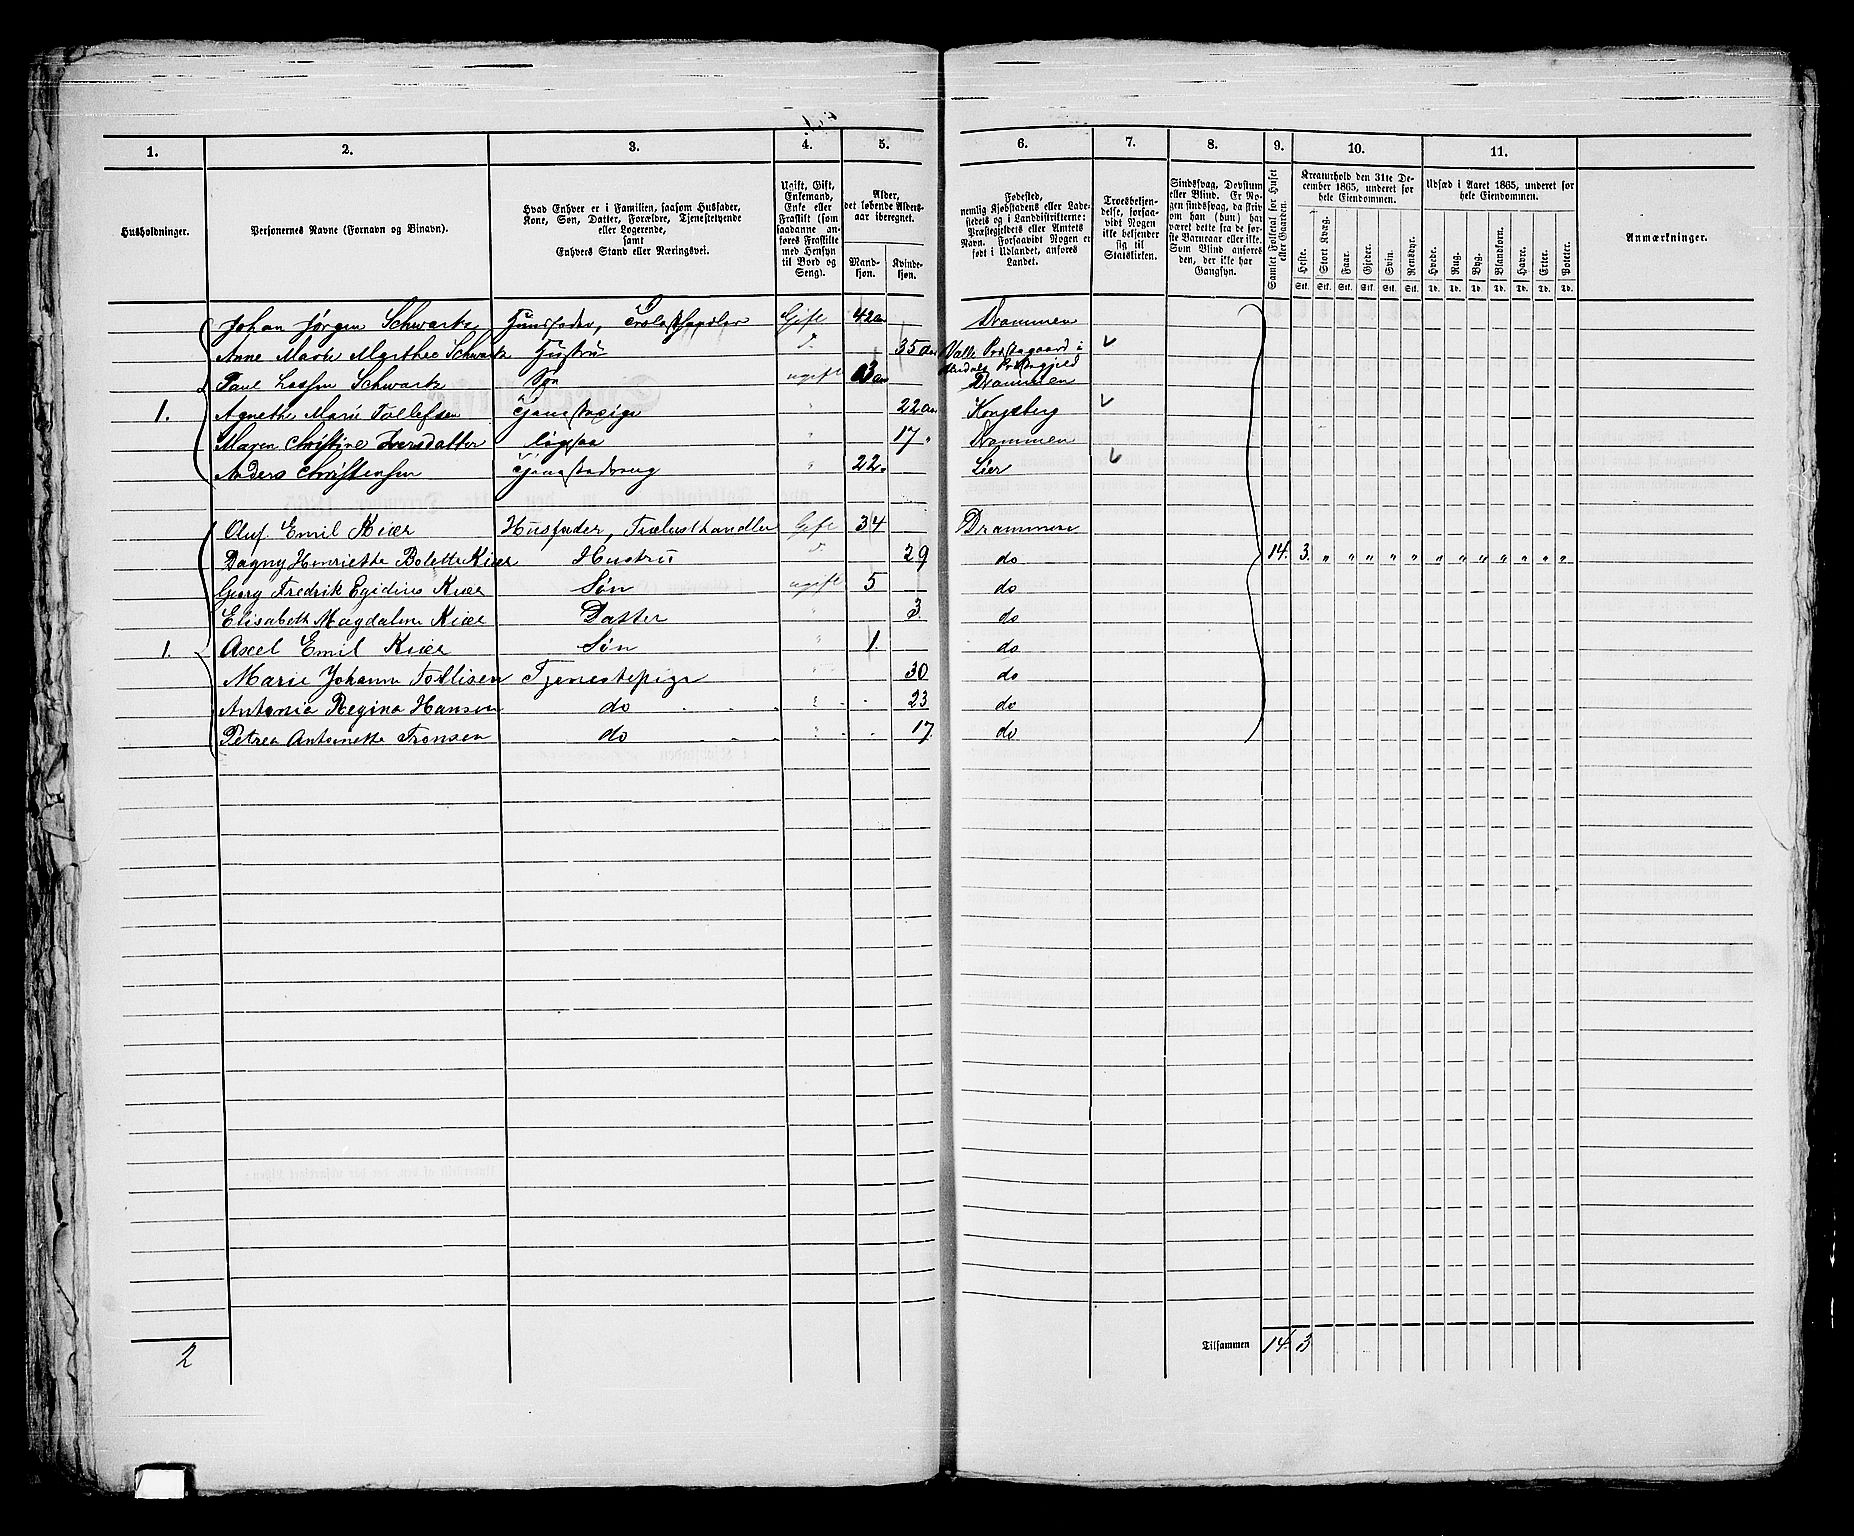 1. 2. 3. 4. 5. 6. 7. 8. 9. 10. 11.
Husholdninger.
Personernes Navne (Fornavn og Binavn).
Hvad Enhver er i Familien, saasom Husfader,
Kone, Søn, Datter, Forældre, Tjenestetyende
eller Logerende,
samt
Enhvers Stand eller Næringsvei.
Ugift, Gift,
Enkemand,
Enke eller
Fraskilt (som
saadanne an-
føres Fraskilte
med Hensyn
til Bord og
Seng).
Alder,
det løbende Alders-
aar iberegnet.
Mand-
kjøn.
Kvinde-
kjøn.
Fødested,
nemlig Kjøbstadens eller Lade-
stedets og i Landdistrikterne:
Præstegjeldets eller Amtets
Navn. Forsaavidt Nogen er
født i Udlandet, anføres
Landet.
Troesbekjen-
delse, forsaa-
vidt Nogen
ikke bekjender
sig til
Statskirken.
Sindssvag, Døvstum
eller Blind. Er No-
gen sindssvag, da skriv
om han (hun) har
været dette fra de før-
ste Barneaar eller ikke.
Som Blind anføres
den, der ikke har
Gangsyn.
Samlet Folketal for Huset
eller Gaarden.
Kreaturhold den 31te De-
cember 1865, underet for
hele Eiendommen.
Heste. Stort Kvæg. Faar. Gjeder. Svin. Rensdyr.
Stk. Stk. Stk. Stk. Stk. Stk.
Udsæd i Aaret 1865, underet for
hele Eiendommen.
Hvede. Rug. Byg. Blandkorn. Havre. Erter. Poteter.
Td. Td. Td. Td. Td. Td. Td.
Anmærkninger.
Johan Jørgen Schwartz Huusfader, Trælasthandler Gift 42 Drammen
Anne Marthe Schwartz Hustru 35 i
Paul Schwartz Søn ugift 13 Drammen
1. Agnethe Marie Tollefsen " 22 Kongsberg
Maren Christine Iversdatter " 17 " Drammen
Anders Christensen " 22 Lier
Oluf Emil Kiær Husfader, Trælasthandler Gift 34 Drammen
Dagny Henriette Bolette Kiær Hustru 29 do 14. 3. " " " " " " " " " " " "
Georg Fredrik Egidius Kiær Søn ugift 5 do
Elisabeth Magdalene Kiær Datter " 3. do
1. Axel Emil Kiær Søn " 1. do
Marie Johanne Tollisen Tjenestepige " 30 do
Antonia Regina Hansen do " 23 do
Petrea Antoinette Fronsen do " 17. do
2
Tilsammen 14 3